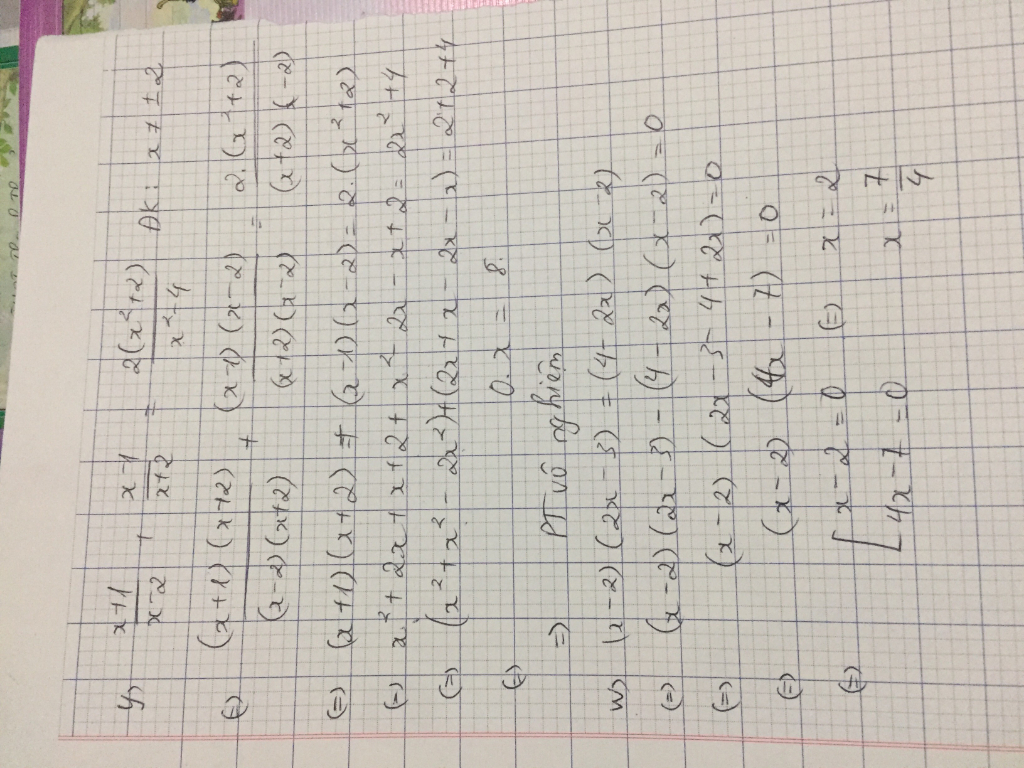 y) \frac{x+1}{x-2} + \frac{x-1}{x+2} = \frac{2(x²+2)}{x²-4} ĐK: x ≠ ±2
(=) \frac{(x+1)(x+2)}{(x-2)(x+2)} + \frac{(x-1)(x-2)}{(x+2)(x-2)} = \frac{2.(x²+2)}{(x+2)(x-2)}
(=) (x+1)(x+2) + (x-1)(x-2) = 2.(x²+2)
(=) x²+2x+x+2+x²-2x-x+2 = 2x²+4
(=) (x²+x²-2x²)+(2x+x-2x-x) = 2+2+4
(=) 0.x = 8.
=) PT vô nghiệm
w) (x-2)(2x-3) = (4-2x)(x-2)
(=) (x-2)(2x-3)-(4-2x)(x-2) = 0
(=) (x-2)(2x-3-4+2x) = 0
(=) (x-2)(4x-7) = 0
(=) [ x-2=0 (=) x=2
4x-7=0 x=\frac{7}{4}